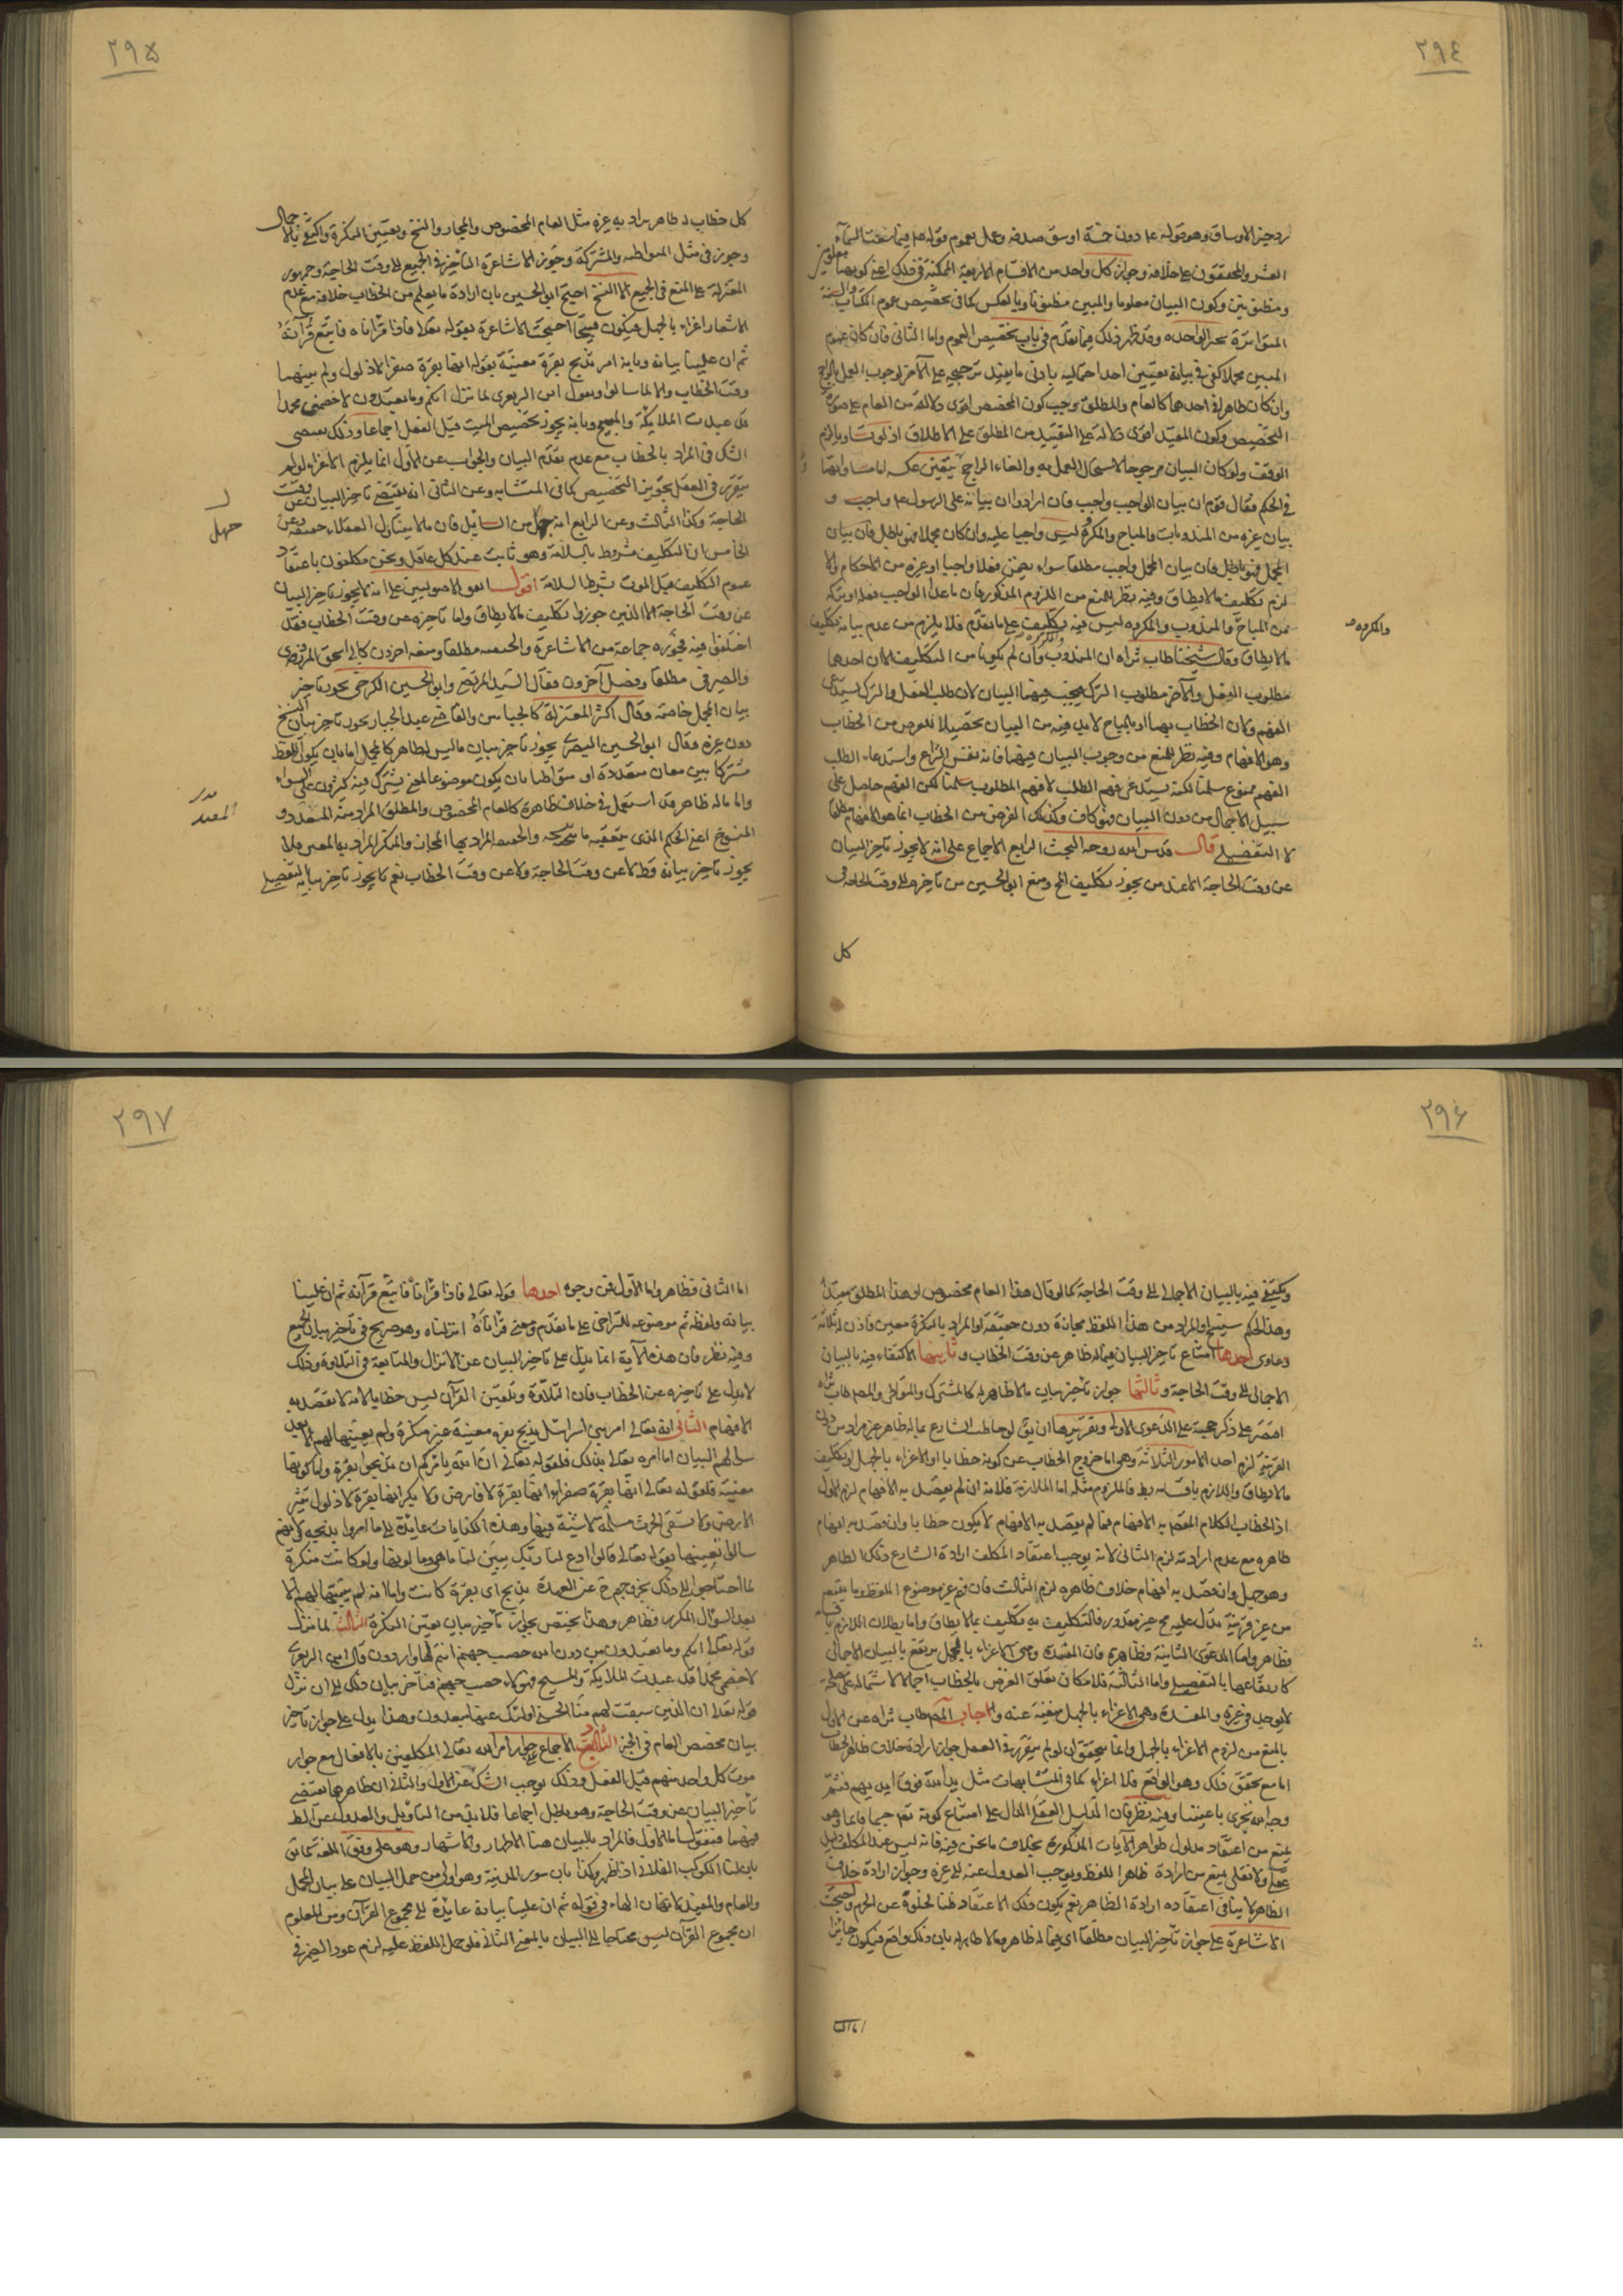 ٢٩٤
لرد خبر الاوساق وهو قوله ع ما دون خمسة اوسق صدقه وعمل بعموم قوله ع فيما سقت السماء
العشر والمحققون على خلافه وجواز كل واحد من الاقسام الاربعة الممكنة في ذلك اعني كونهما معلومين
ومظنونين وكون البيان معلوما والمبين مظنونا وبالعكس كما في تخصيص عموم الكتاب والسنة
المتواترة بخبر الواحد وقد ظهر ذلك فيما تقدم في باب تخصيص العموم واما الثاني فان كان عموم
المبين مجملا كفى في بيانه تعيين احد احتماليه بادنى ما يفيد ترجيحه على الآخر لوجوب العمل بالراجح
وان كان ظاهرا في احدهما كالعام والمطلق وجب كون المخصص اقوى دلالة من العام على صورة
التخصيص وكون المقيد اقوى دلالة على التقييد من المطلق على الاطلاق اذ لو تساويا لزم
الوقف ولو كان البيان مرجوحا لاستحال العمل به والغاء الراجح بتعين عكسه اما مساواتهما
في الحكم فقال قوم ان بيان الواجب واجب فان ارادوا ان بيانه على الرسول ع واجب و
بيان غيره من المندوبات والمباح والمكروه ليس واجبا عليه وان كان مجملا فهو باطل فان بيان
المجمل فهو باطل فان بيان المجمل واجب مطلقا سواء تضمن فعلا واجبا او غيره من الاحكام والا
لزم تكليف ما لا يطاق وفيه نظر للمنع من اللزوم المذكور فان ما عدا الواجب فعله او تركه
من المباح والمندوب والمكروه ليس فيه تكليف على ما تقدم فلا يلزم من عدم بيانه تكليف
ما لا يطاق وقال شيخنا طاب ثراه ان المندوب والمكروه وان لم يكونا من التكليف الا ان احدهما
مطلوب الفعل والآخر مطلوب الترك فيجب فيهما البيان لان طلب الفعل والترك يستدعي
الفهم وكان الخطاب بهما او بالمباح لا بد فيه من البيان تحصيلا للغرض من الخطاب
وهو الافهام وفيه نظر للمنع من وجوب البيان فيهما فانه نفس النزاع واستدعاء الطلب
الفهم ممنوع سلمنا لكنه يستدعي فهم الطلب لا فهم المطلوب سلمنا لكن الفهم حاصل على
سبيل الاجمال من دون البيان فهو كاف وكذلك الغرض من الخطاب انما هو الافهام مطلقا
لا التفصيلي قال قدس الله روحه البحث الرابع الاجماع على انه لا يجوز تاخير البيان
عن وقت الحاجة الا عند من يجوز تكليف المح ومنع ابو الحسين من تاخيره الى وقت الحاجة في
كل
والمكروه ص
٢٩٥
كل خطاب له ظاهر يراد به غيره مثل العام المخصوص والمجاز والنسخ وتعيين النكرة واكتفى بالاجمال
وجوز في مثل المتواطئه والمشتركة وجوز الاشاعرة التأخير في الجميع الى وقت الحاجة وجمهور
المعتزلة على المنع في الجميع الا النسخ احتج ابو الحسين بان ارادة ما يعلم من الخطاب خلافه مع عدم
الاشعار اغراء بالجهل فيكون قبيحا احتجت الاشاعرة بقوله تعالى فاذا قرأناه فاتبع قرآنه
ثم ان علينا بيانه وبانه امر بذبح بقرة معينة بقوله انها بقرة صفراء لا ذلول ولم يبينها
وقت الخطاب والا لما سالوا وبقول ابن الزبعرى لما نزل انكم وما تعبدون لاخصمن محمدا
قد عبدت الملائكة والمسيح وبانه يجوز تخصيص الميت قبل الفعل اجماعا وذلك يقتضي
الشك في المراد بالخطاب مع عدم تقدم البيان والجواب عن الاول انما يلزم الاغراء لو لم
يتقرر في العقل تجويز التخصيص كما في المتشابه وعن الثاني انه يقتضي تاخير البيان عن وقت
الحاجة وكذا الثالث وعن الرابع انه جهل من السائل فان ما لا يتناول العقلاء حقيقة وعن
الخامس ان التكليف مشروط بالسلامة وهو ثابت عند كل عاقل ونحن مكلفون باعتقاد
عموم التكليف قبل الموت بشرط السلامة اقول اتفق الاصوليين على انه لا يجوز تاخير البيان
عن وقت الحاجة الا الذين جوزوا تكليف ما لا يطاق واما تاخيره عن وقت الخطاب فقد
اختلفوا فيه فجوزه جماعة من الاشاعرة والحنفيه مطلقا ومنعه آخرون كابي اسحق المروزى
والصيرفي مطلقا وفصل آخرون فقال السيد المرتضى وابو الحسين الكرخي يجوز تاخير
بيان المجمل خاصة وقال اكثر المعتزلة كالجبائيين والقاضي عبد الجبار يجوز تاخير بيان النسخ
دون غيره وقال ابو الحسين البصري يجوز تاخير بيان ما ليس له ظاهر كالمجمل اما بان يكون اللفظ
مشتركا بين معان متعددة او متواطيا بان يكون موضوعا لمعنى يشترك فيه كثرون على السواء
واما ما له ظاهر قد استعمل في خلاف ظاهره كالعام المخصوص والمطلق المراد منه المقيد و
المنسوخ اعني الحكم الذي يتعقبه ما ينسخه والحقيقه المراد بها المجاز والمنكر المراد به المعين فلا
يجوز تاخير بيانه قط لا عن وقت الحاجة ولا عن وقت الخطاب نعم كا يجوز تاخير بيانه التفصيلي
جهل
المقيد
٢٩٦
ويكتفى فيه بالبيان الاجمالي الى وقت الحاجة كما لو قال هذا العام مخصوص او هذا المطلق مقيد
وهذا الحكم سينسخ او المراد من هذا اللفظ مجازه دون حقيقته او المراد بالنكرة معين فاذن له ثلاثة
دعاوى احدها امتناع تاخير البيان فيما له ظاهر عن وقت الخطاب وثانيها الاكتفاء فيه بالبيان
الاجمالي الى وقت الحاجة وثالثها جواز تأخير بيان ما لا ظاهر له كالمشترك والمتواطى والمص طاب ثراه
اقتصر على ذكر حجته على الدعوى الاولى وتقريرها ان يق لو خاطب الشارع بما له ظاهر غير مراد من دون
القرينة لزم احد الامور الثلاثة وهي اما خروج الخطاب عن كونه خطابا او الاغراء بالجهل او تكليف
ما لا يطاق واللازم باقسامه بط فالملزوم مثله اما الملازمة فلانه ان لم يقصد به الافهام لزم الاول
اذ الخطاب الكلام المقصد به الافهام فما لم يقصد به الافهام لا يكون خطابا وان قصد به افهام
ظاهره مع عدم ارادته لزم الثاني لانه يوجب اعتقاد المكلف ارادة الشارع ذلك الظاهر
وهو جهل وان قصد به افهام خلاف ظاهره لزم الثالث فان فهم غير موضوع اللفظ وما يتبعه
من غير قرينة تدل عليه مح غير مقدور فالتكليف به تكليف بما لا يطاق واما بطلان اللازم باقسامه
فظاهر واما الدعوى الثانية فظاهرة فان المفسدة وهي الاغراء بالجهل يرتفع بالبيان الاجمالي
كارتفاعها بالتفصيلي واما الثالثة فلامكان تعلق الغرض بالخطاب اجمالا لاشتماله على مصلحة
لا يوجد في غيره والمفسدة وهي الاغراء بالجهل منفية عنه واجاب المص طاب ثراه عن الاول
بالمنع من لزوم الاغراء بالجهل وانما يتحقق ان لو لم يتقرر في العقل جواز ارادة خلاف ظاهر الخطاب
اما مع تحقق ذلك وهو الواقع فلا اغراء كما في المتشابهات مثل يد الله فوق ايديهم فثم
وجه الله تجري باعيننا وفيه نظر فان الدليل العقلي الدال على امتناع كونه تعم جسما قائما وهو
يمنع من اعتقاد مدلول ظواهر الآيات المذكورة بخلاف ما نحن فيه فانه ليس عند المكلف دليل
عقلي ولا نقلي يمنع من ارادة ظاهر اللفظ ويوجب العدول عنه الى غيره وجواز ارادة خلاف
الظاهر لا ينافي اعتقاده ارادة الظاهر نعم يكون ذلك الاعتقاد ظنا لخلوه عن الجزم واحتجت
الاشاعرة على جواز تأخير البيان مطلقا اى فيما له ظاهر وما لا ظاهر له بان ذلك واقع فيكون جائزا
اما الث
٢٩٧
اما الثاني فظاهر واما الاول فمن وجوه احدها قوله تعالى فاذا قرأناه فاتبع قرآنه ثم ان علينا
بيانه ولفظه ثم موضوعه للتراخي على ما تقدم ومعنى قرأناه انزلناه وهو صريح في تاخير بيان الجميع
وفيه نظر فان هذه الآية انما يدل على تاخير البيان عن الانزال والمتابعة في التلاوة وذلك
لا يدل على تاخيره عن الخطاب فان التلاوة وتلقين القرآن ليس خطابا لانه لا يقصد به
الافهام الثاني انه تعالى امر بني اسرائيل بذبح بقرة معينة غير منكرة ولم يعينها لهم الا بعد
سؤالهم البيان اما امره تعالى بذلك فلقوله تعالى ان الله يامركم ان تذبحوا بقرة واما كونها
معينة فلقوله تعالى انها بقرة صفراء انها بقرة لا فارض ولا بكر انها بقرة لا ذلول تثير
الارض ولا تسقى الحرث مسلمة لا شية فيها وهذه الكنايات عايدة الى ما امروا بذبحه لانهم
سالوا تعيينها بقوله تعالى قالوا ادع لنا ربك يبين لنا ما هي وما لونها ولو كانت منكرة
لما احتاجوا الى ذلك بخروجهم عن العهدة بذبح اى بقرة كانت واما انه لم يبينها لهم الا
بعد السؤال المكرر فظاهر وهذا يختص بجواز تأخير بيان تعيين النكرة الثالث لما نزل
قوله تعالى انكم وما تعبدون من دون الله حصب جهنم انتم لها واردون قال ابن الزبعرى
لاخصمن محمدا قد عبدت الملائكة والمسيح فهؤلاء حصب جهنم فتاخر بيان ذلك الى ان نزل
قوله تعالى ان الذين سبقت لهم منا الحسنى اولئك عنها مبعدون وهذا يدل على جواز تاخير
بيان مخصص العام في الخبر الرابع الاجماع على جواز امر الله تعالى المكلفين بالافعال مع جواز
موت كل واحد منهم قبل الفعل وذلك يوجب الشك عن الاول والثاني ان ظاهرهما يقتضي
تأخير البيان عن وقت الحاجة وهو باطل اجماعا فلا بد من التاويل والعدول عن الظاهر
فيهما فنقول اما الاول فالمراد بالبيان هنا الاظهار والاشهار وهو على وفق اللغة كما يق
بان لنا الكوكب الفلاني اذا ظهر وكذا بان سور المدينة وهو اولى من حمل البيان على بيان المجمل
والعام والمقيد لا تهان الهاء في قوله ثم ان علينا بيانه عايدة الى مجموع القرآن ومن المعلوم
ان مجموع القرآن ليس محتاجا الى البيان بالمعنى الثاني فلو حمل اللفظ عليه لزم عود الضمير في